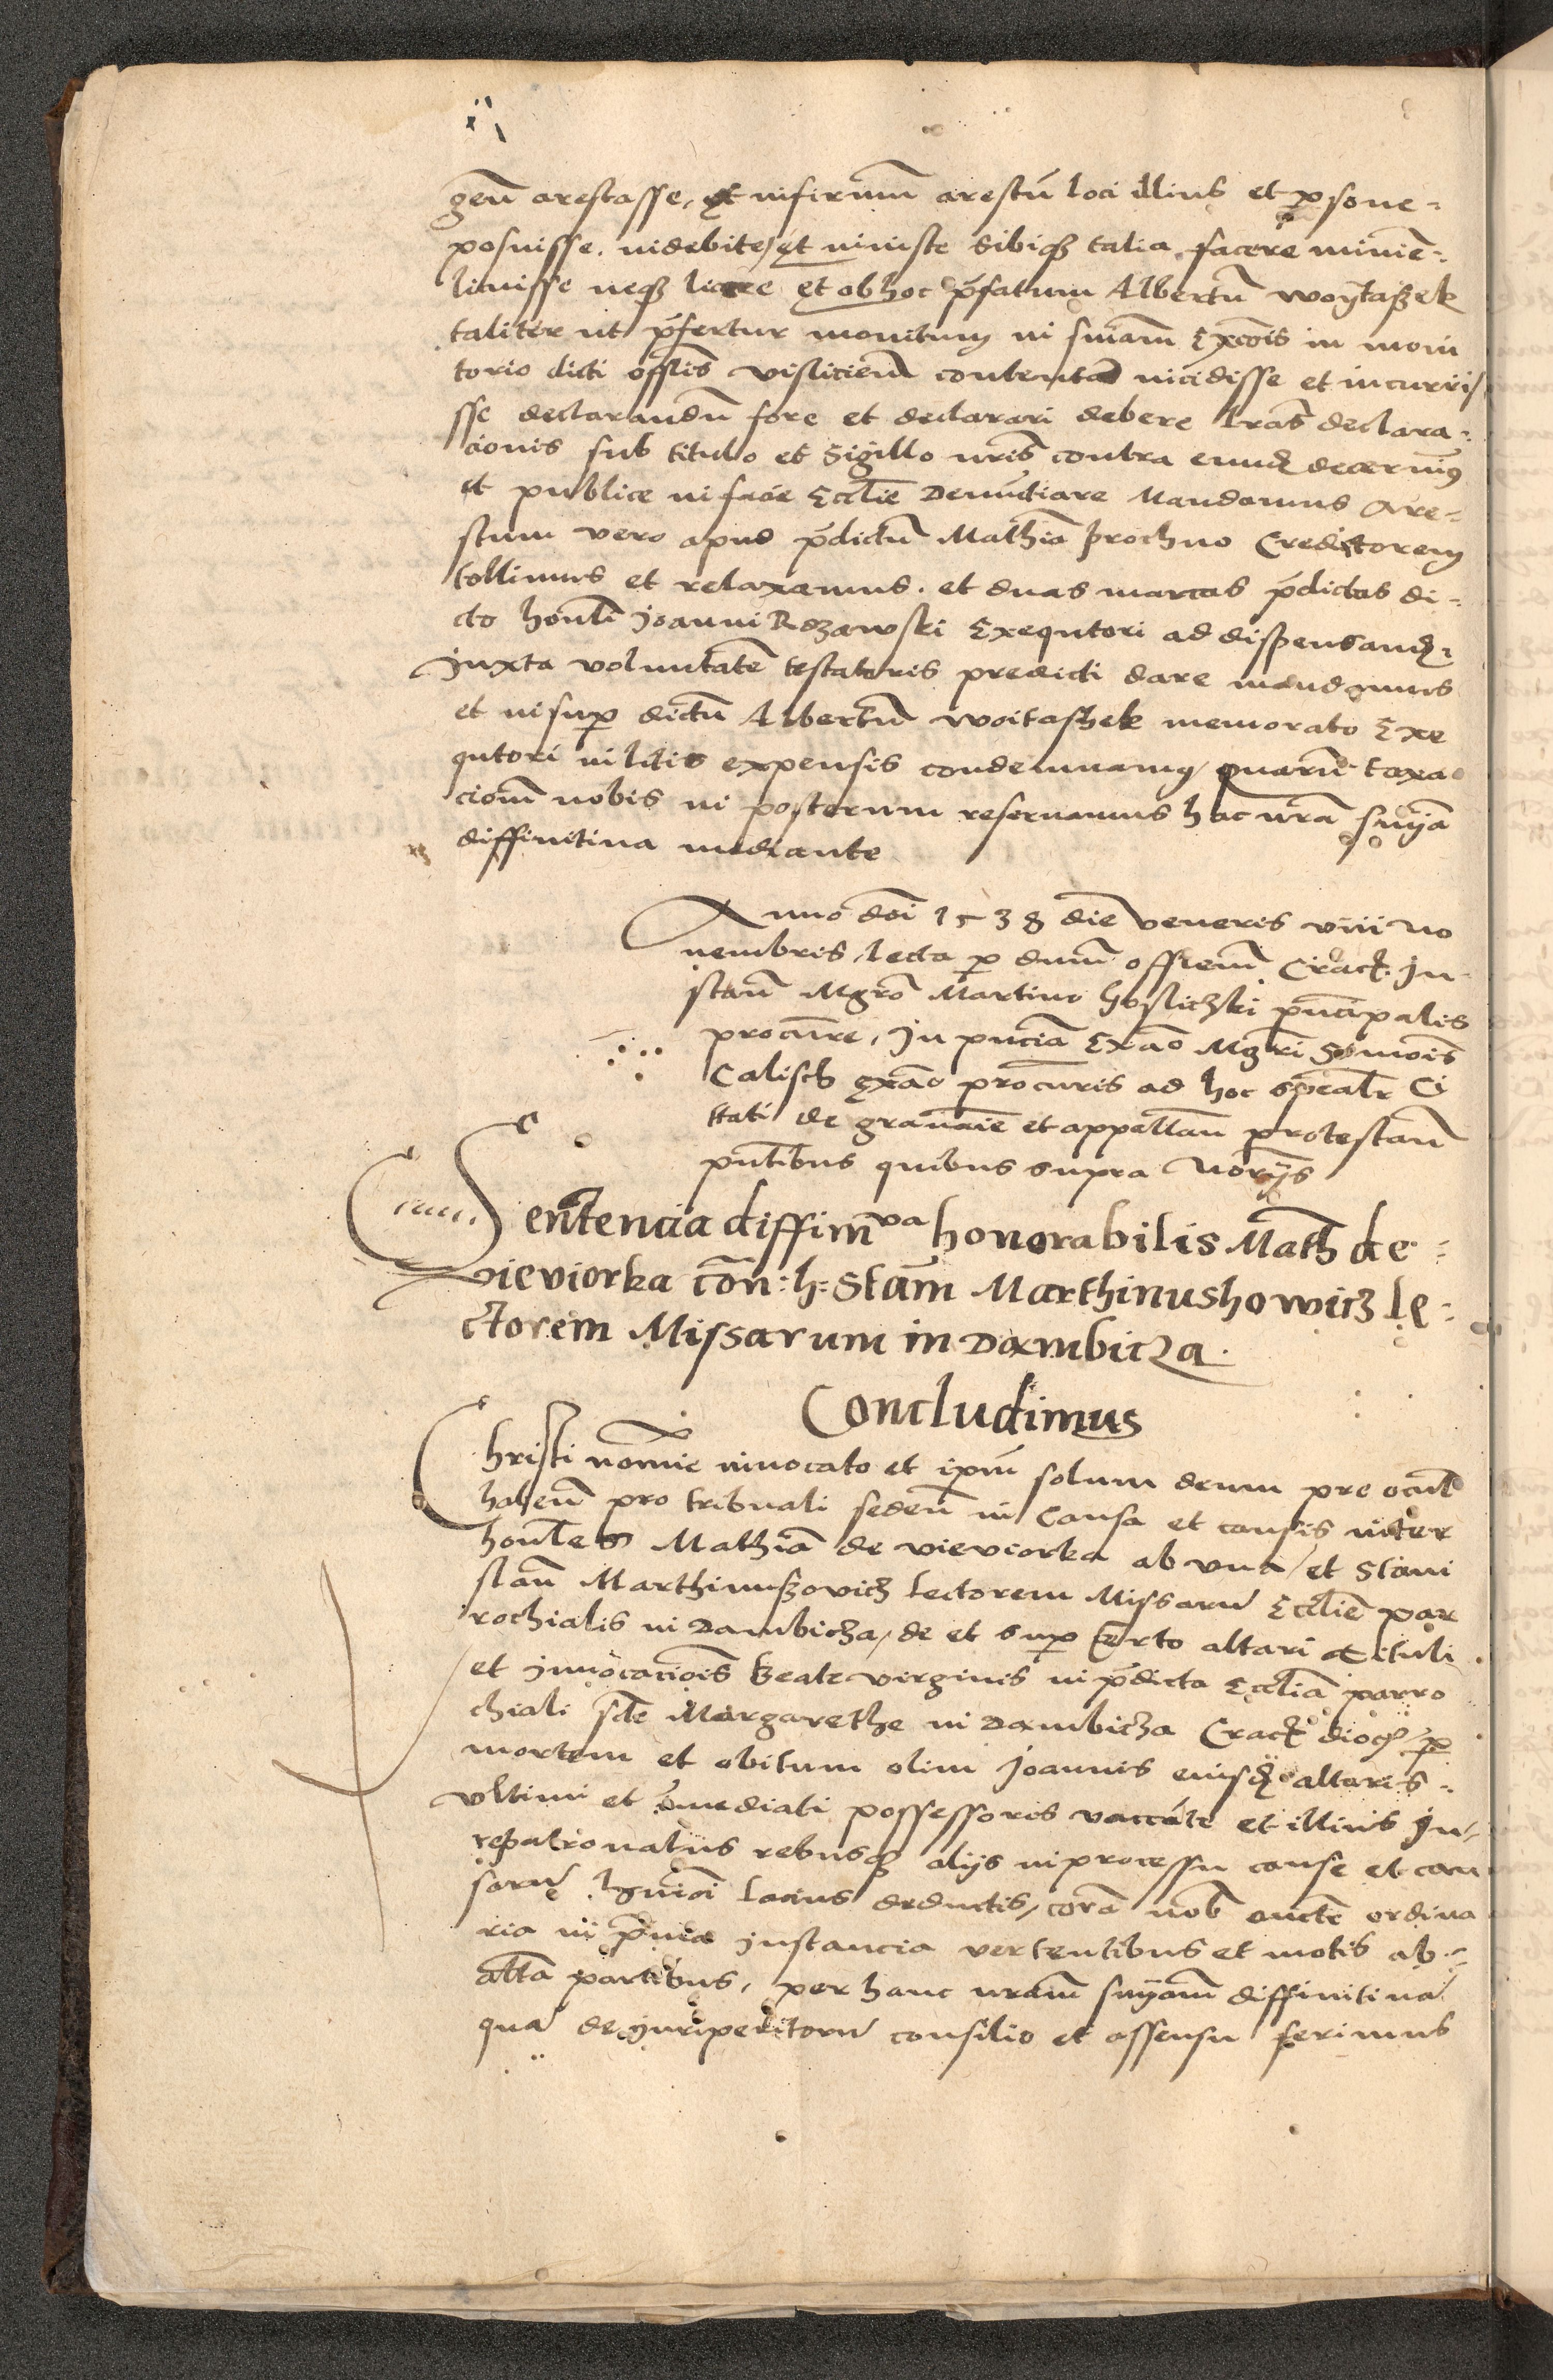 geñ arestasse, et infirmum arestũ loci illius et psone-
posuisse. indebite / et iniuste sibiqȝ talia facere minime-
licuisse neqȝ licere et ob hoc p̃fatum Albertũ woÿtasȝek
taliter ut p̃fertur monitum in suiam Excois in moni
torio dicti offlis visliciens contentas incidisse et incurri/
sse declarandũ fore et declarari debere lras declara-
cionis sub titulo et Sigillo nris contra eundȝ decernim9
et publice in facie Ecclie Denũctiare Mandamus Are-
stum vero apud p̃dictũ Mathiã prochno Creditorem
tollimus et relaxamus. et duas marcas p̃dictas di-
cto honli Joanni Rdzawski Exequtori ad dispensandȝ
Juxta voluntatẽ testatoris predicti dare mandamus
et insup dictũ Albertũ woitashek memorato Exe
qutori in litis expensis condemnamus / quarũ taxa
cionẽ nobis in posterum reservamus hac nrã suĩa
diffinitiva mediante
Anno doĩ 1538 die veneris viii no
vembris, lecta p dnum officiem Crac. In-
stañ Mgro Martino hoslicȝki principalis
procure, In pncia Exão Mgri Simois
Calisch exão procuris ad hoc specialr Ci
tati de gravaĩe et appellañ protestañ
pntibus quibus supra Norijs
Sentencia diffiniva honorabilis Math de-
Vieviorka con: h: Stam Marthinushowicȝ le-
ctorem Missarum in Dambicza.
Concludimus
Christi nomie invocato et ipm solum deum pre ocul
habeñ pro tribunali sedeñ in Causa et causis inter
honles Mathiã de vieviorka ab una / et Stani
slaũ Marthinusȝovicȝ lectorem Missarũ Ecclie par
rochialis in Dambicȝa / de et sup certo altari tituli
et Invocaciois Beate virginis in p̃dicta Ecclia parro
chiali scte Margarethe in Dambicȝa Crac dioc / p
mortem et obitum olim Joannis eiusdȝ altaris-
ultimi et ĩmediati possessoris vaccãte et illius Iu-
repatronatus rebusqȝ alijs in processu cause et cau
sarũ hmoi lacius deductis, corã nob auctẽ ordina
ria in p̃ma Instancia vertentibus et motis ab-
alta partibus, per hanc nram suĩam diffinitivã
quã de Juriperitorũ consilio et assensu ferimus